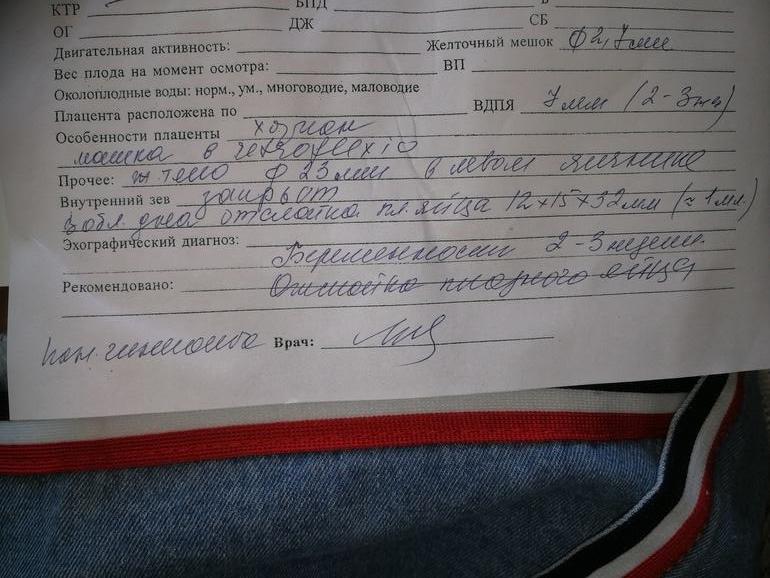 КТР БПД В
ОГ ДЖ СБ
Двигательная активность: Желточный мешок ф 2,7мм
Вес плода на момент осмотра: ВП
Околоплодные воды: норм., ум., многоводие, маловодие
Плацента расположена по ВДПЯ 7мм (2-3нед)
Особенности плаценты хорион
матка в retroflexio
Прочее: ж.тело ф 23мм в левом яичнике
Внутренний зев закрыт
в обл. дна отслойка пл.яйца 12×15×32мм (≈1мл.)
Эхографический диагноз:
Беременность 2-3недели.
Рекомендовано: Отслойка плодного яйца
Врач: